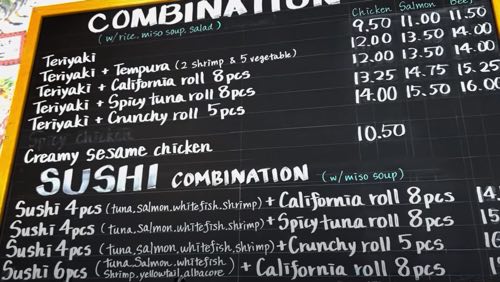 COMBINATION
(w/rice, miso soup, salad)
Chicken Salmon Beef
Teriyaki 9.50 11.00 11.50
Teriyaki + Tempura (2 shrimp & 5 vegetable) 12.00 13.50 14.00
Teriyaki + California roll 8pcs 12.00 13.50 14.00
Teriyaki + Spicy tuna roll 8pcs 13.25 14.75 15.25
Teriyaki + Crunchy roll 5pcs 14.00 15.50 16.00
Spicy chicken
Creamy sesame chicken 10.50
SUSHI COMBINATION (w/miso soup)
Sushi 4pcs (tuna, salmon, whitefish, shrimp) + California roll 8pcs 14.
Sushi 4pcs (tuna, salmon, whitefish, shrimp) + Spicy tuna roll 8pcs
Sushi 4pcs (tuna, salmon, whitefish, shrimp) + Crunchy roll 5pcs
Sushi 6pcs (tuna, Salmon, whitefish, Shrimp, yellowtail, albacore) + California roll 8pcs